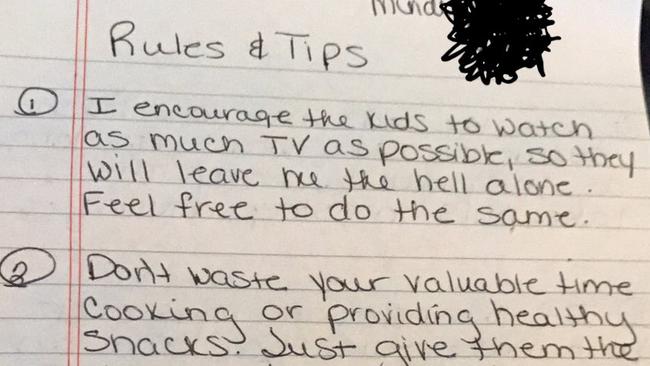 Rules & Tips
① I encourage the kids to watch
as much TV as possible, so they
will leave me the hell alone.
Feel free to do the same.
② Don't waste your valuable time
cooking or providing healthy
snacks. Just give them the